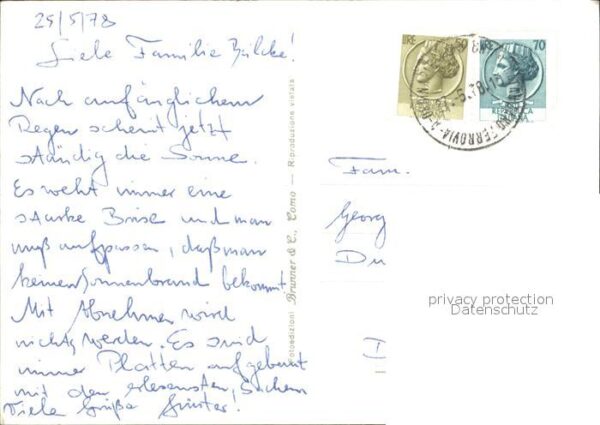 25/5/78
Liebe Familie Bilcke!
Nach anfänglichem
Regen scheint jetzt
ständig die Sonne.
Es weht immer eine
starke Brise und man
muß aufpassen, daß man
keinen Sonnenbrand bekommt.
Mit Abnehmen wird
nichts werden. Es sind
immer Platten aufgebaut
mit den erlesensten Sachen
Viele Grüße
Fotoedizioni Brunner & C., Como — Riproduzione vietata
LIRE 50
70
FERROVIA
Fam.
Georg
Du
privacy protection
Datenschutz